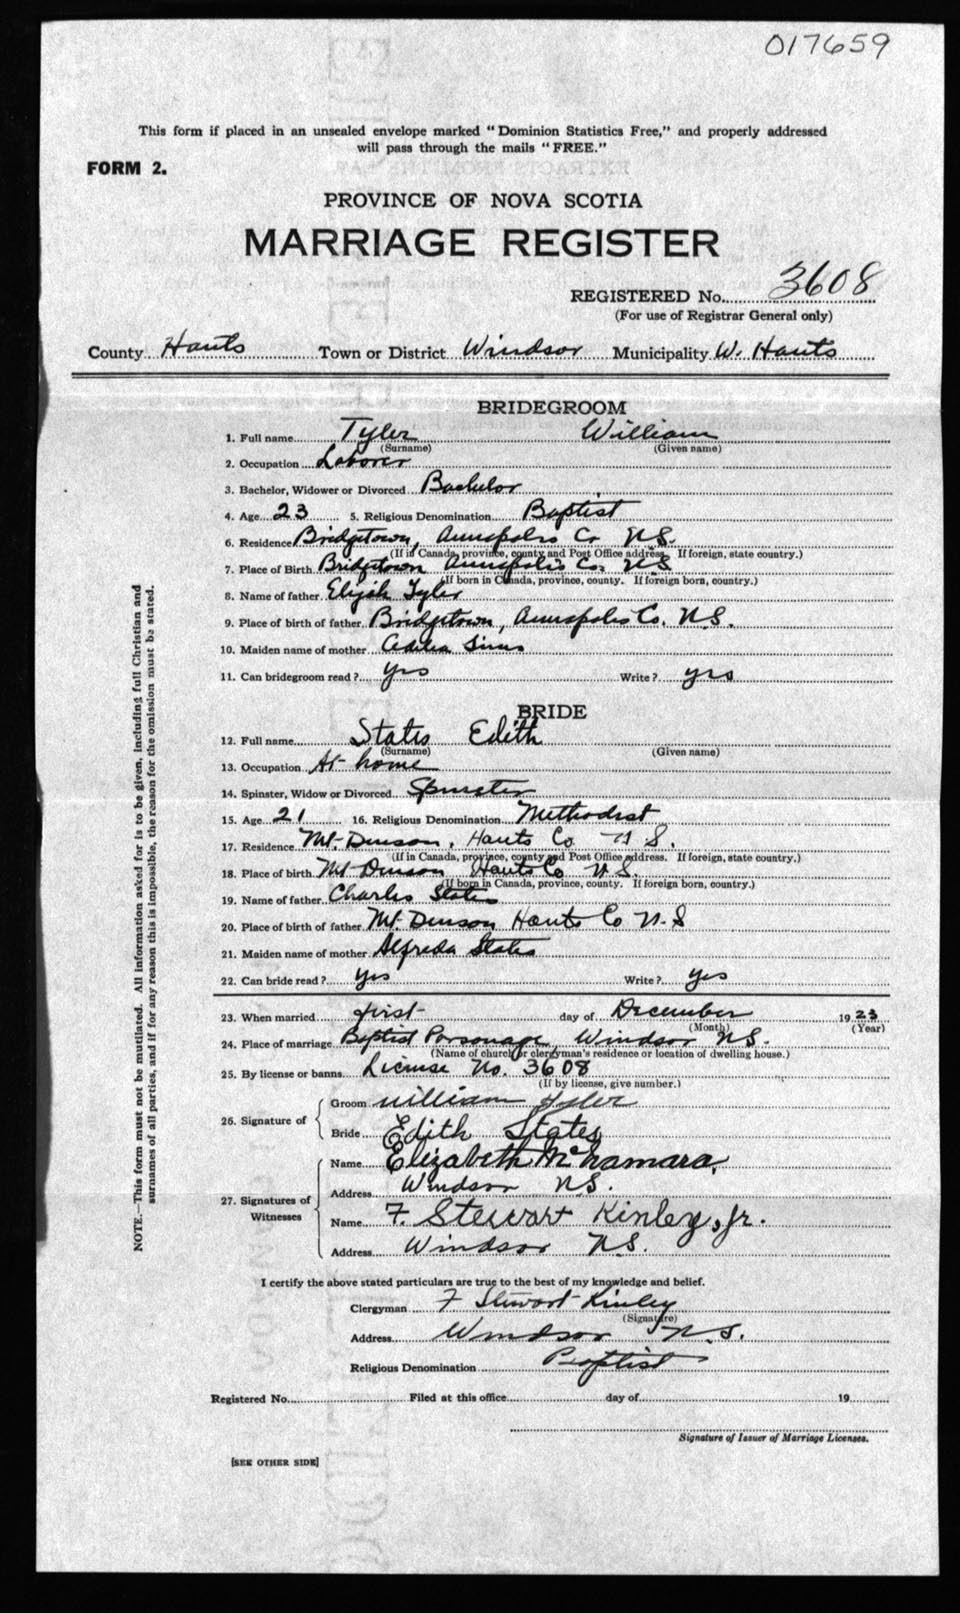 017659
This form if placed in an unsealed envelope marked "Dominion Statistics Free," and properly addressed
will pass through the mails "FREE."
FORM 2.
PROVINCE OF NOVA SCOTIA
MARRIAGE REGISTER
REGISTERED No. 3608
(For use of Registrar General only)
County Hants Town or District Windsor Municipality W. Hants
BRIDEGROOM
1. Full name Tyler William
(Surname) (Given name)
2. Occupation Laborer
3. Bachelor, Widower or Divorced Bachelor
4. Age 23 5. Religious Denomination Baptist
6. Residence Bridgetown, Annapolis Co N.S.
(If in Canada, province, county and Post Office address. If foreign, state country.)
7. Place of Birth Bridgetown Annapolis Co. N.S
(If born in Canada, province, county. If foreign born, country.)
8. Name of father Elijah Tyler
9. Place of birth of father Bridgetown, Annapolis Co. N.S.
10. Maiden name of mother Adelia Sims
11. Can bridegroom read? yes Write? yes
BRIDE
12. Full name States Edith
(Surname) (Given name)
13. Occupation At home
14. Spinster, Widow or Divorced Spinster
15. Age 21 16. Religious Denomination Methodist
17. Residence Mt. Denson, Hants Co N S.
(If in Canada, province, county and Post Office address. If foreign, state country.)
18. Place of birth Mt Denson Hants Co N.S.
(If born in Canada, province, county. If foreign born, country.)
19. Name of father Charles States
20. Place of birth of father Mt. Denson Hants Co N.S
21. Maiden name of mother Alfreda States
22. Can bride read? yes Write? yes
23. When married first day of December 1923
(Month) (Year)
24. Place of marriage Baptist Parsonage, Windsor N.S.
(Name of church or clergyman's residence or location of dwelling house.)
25. By license or banns License No. 3608
(If by license, give number.)
26. Signature of
Groom William Tyler
Bride Edith States
27. Signatures of Witnesses
Name Elizabeth McNamara,
Address Windsor N.S.
Name F. Stewart Kinley, Jr.
Address Windsor N.S.
I certify the above stated particulars are true to the best of my knowledge and belief.
Clergyman F Stewart Kinley
(Signature)
Address Windsor N.S.
Religious Denomination Baptist
Registered No. Filed at this office day of 19
Signature of Issuer of Marriage Licenses.
[SEE OTHER SIDE]
NOTE.—This form must not be mutilated. All information asked for is to be given, including full Christian and
surnames of all parties, and if for any reason this is impossible, the reason for the omission must be stated.